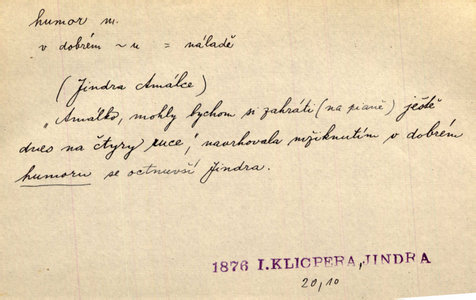 humor m.
v dobrém ~u = náladě
(Jindra Amálce)
"Amálko, mohly bychom si zahráti (na pianě) ještě
dnes na čtyry ruce," navrhovala mžiknutím v dobrém
humoru se octnuvší Jindra.
1876 I. KLICPERA, JINDRA
20,10